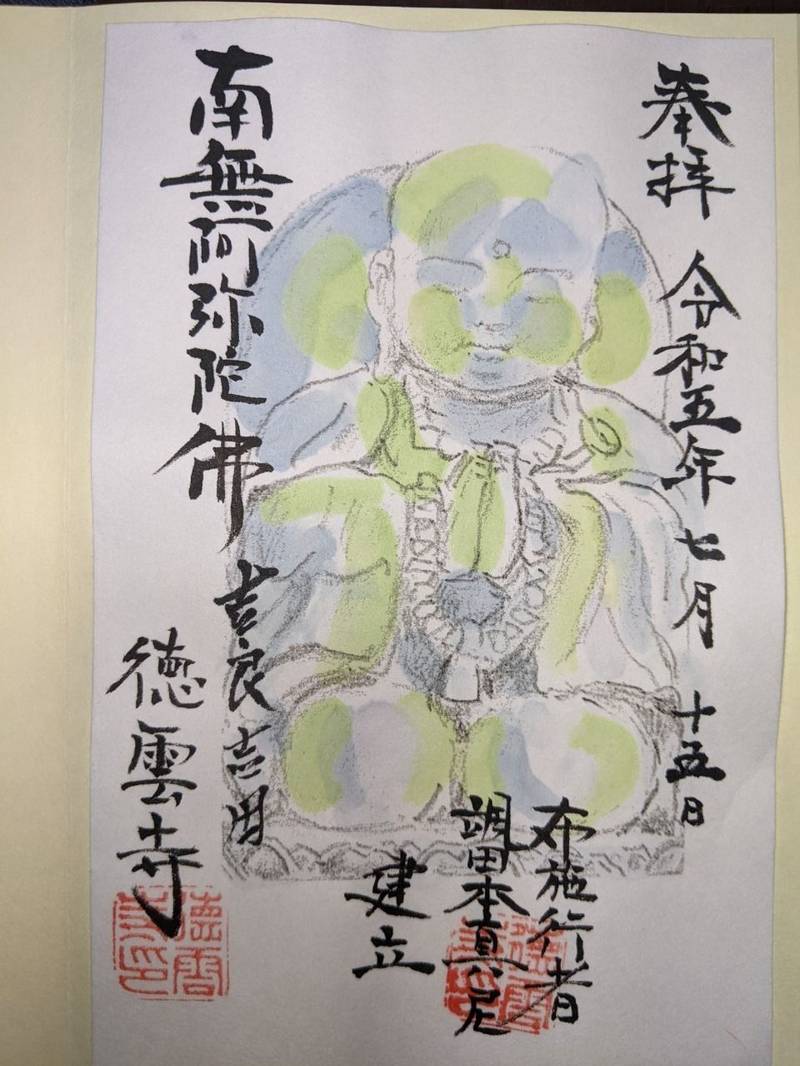 奉拝 令和五年七月十五日
布施行者
颯田本真尼
建立
南無阿弥陀佛
吉良吉田
徳雲寺
徳雲
寺印